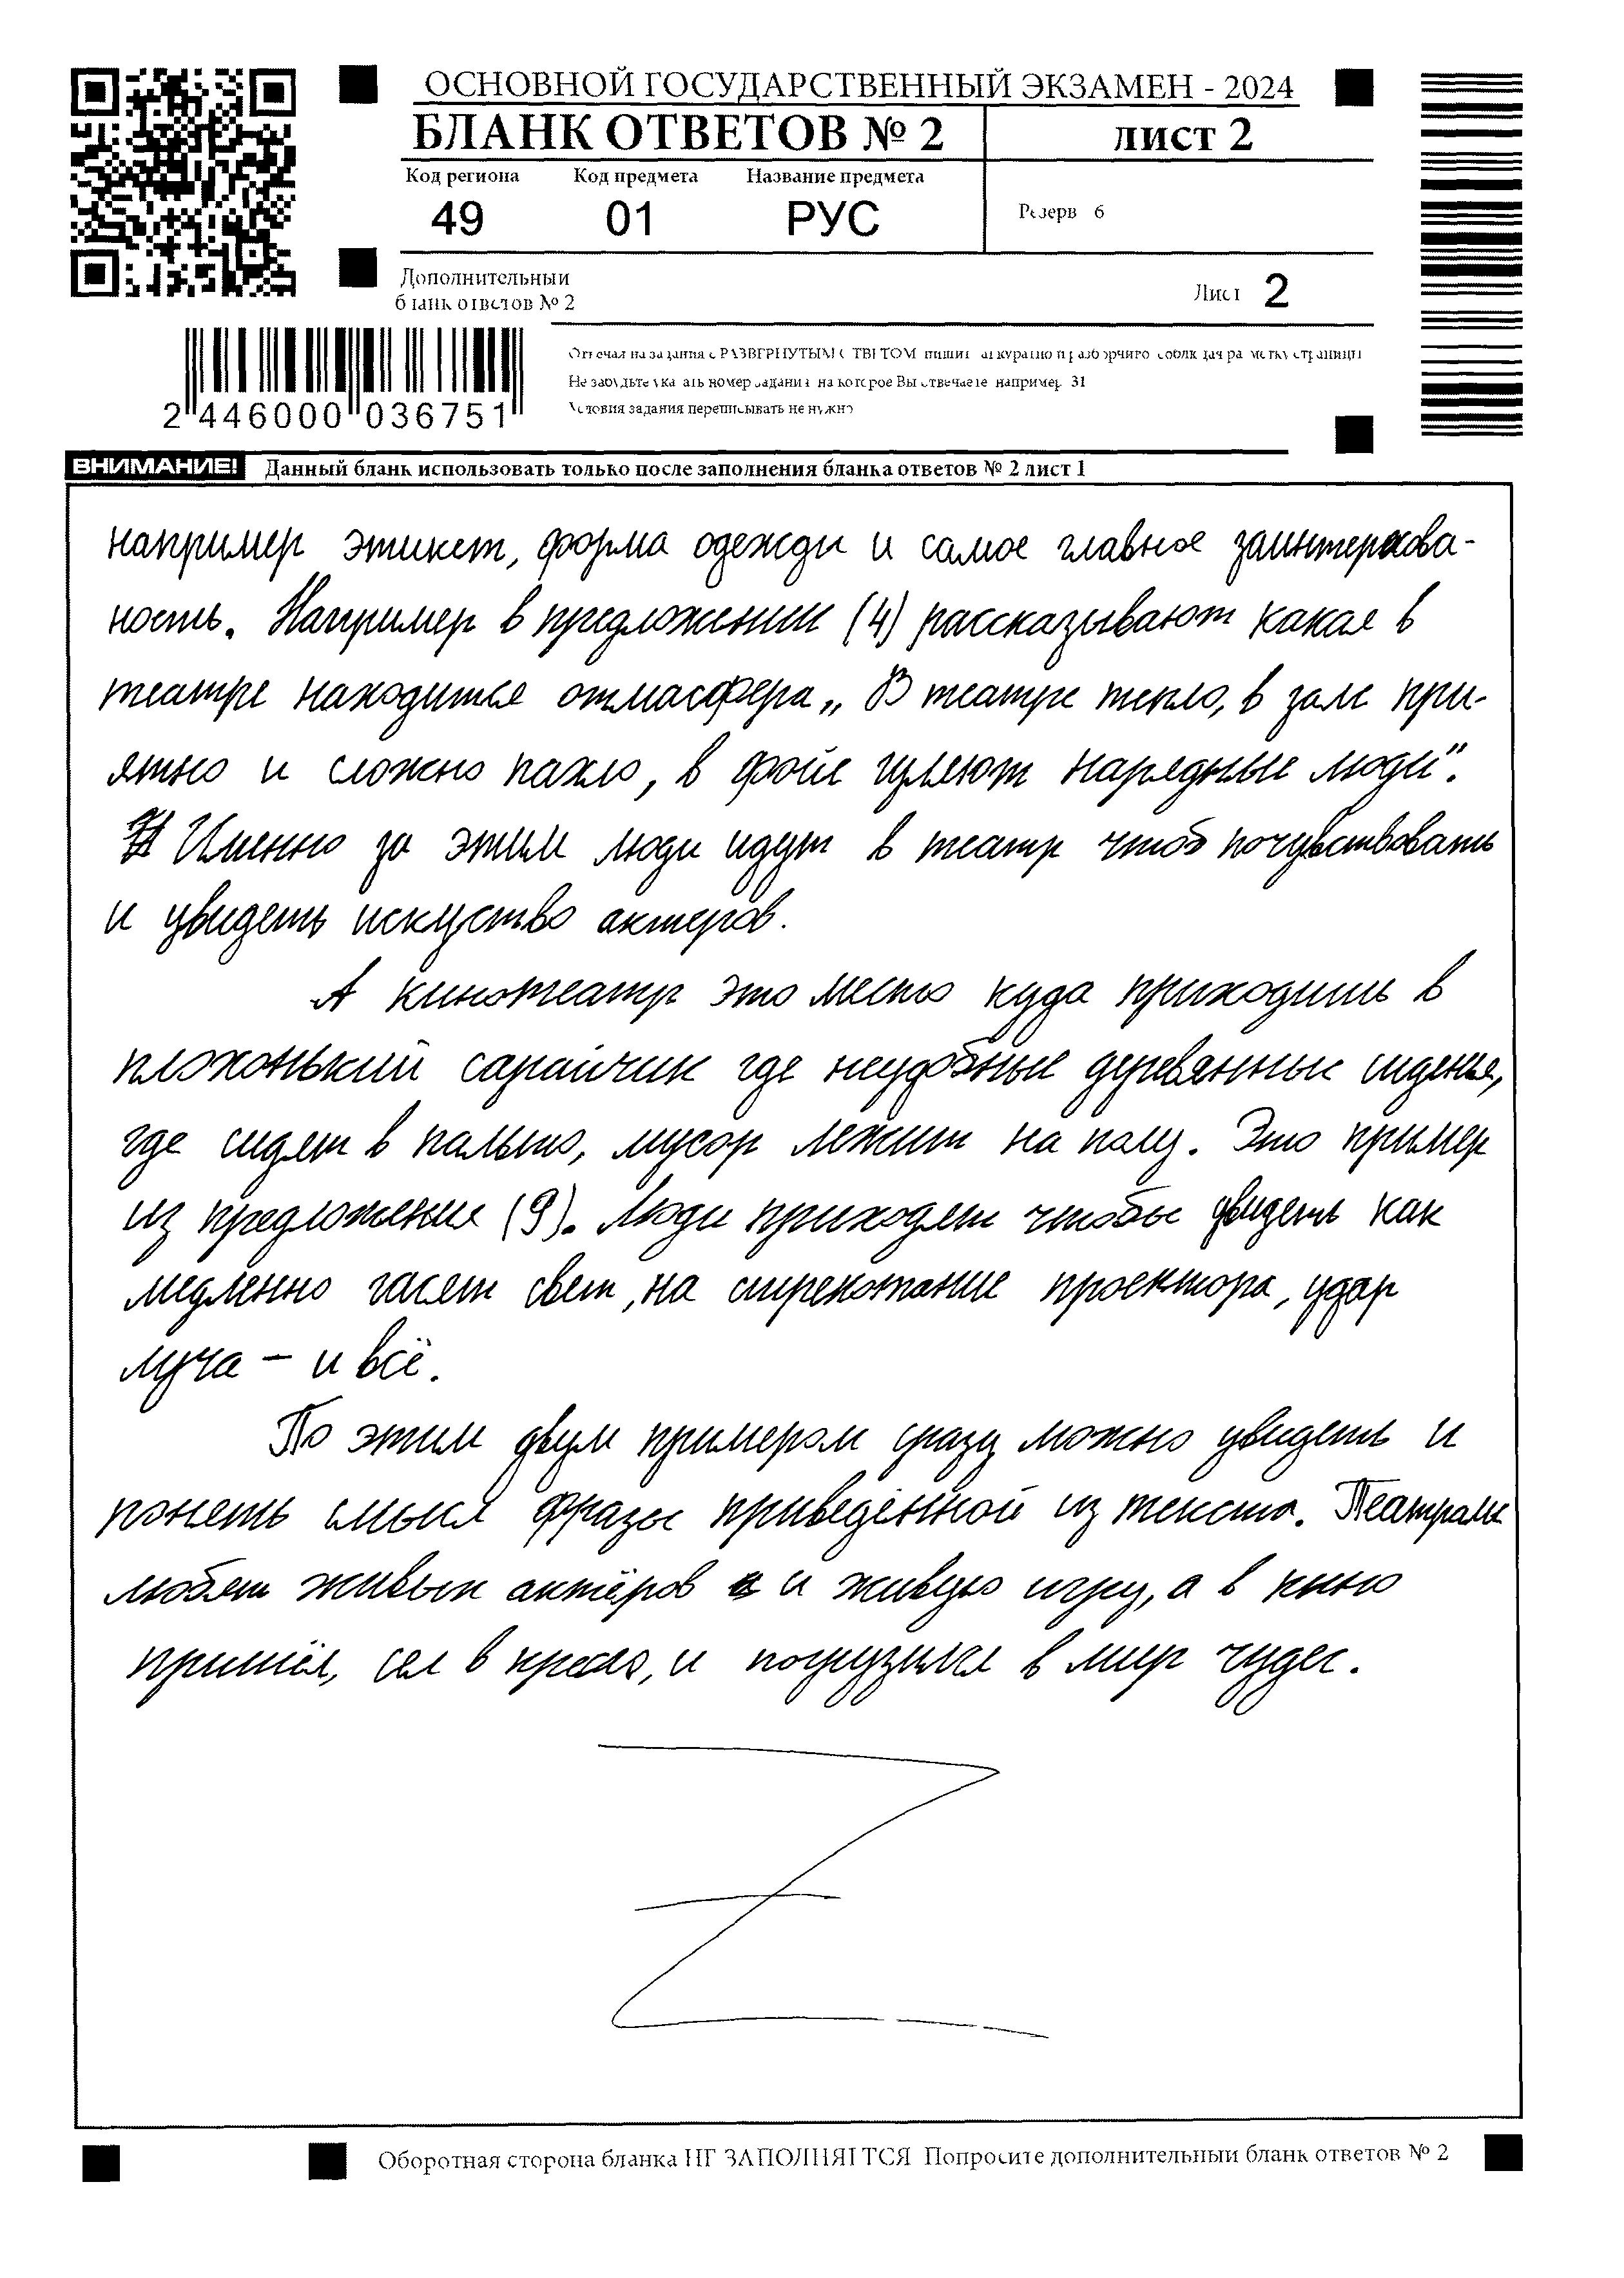 ОСНОВНОЙ ГОСУДАРСТВЕННЫЙ ЭКЗАМЕН - 2024
БЛАНК ОТВЕТОВ № 2
лист 2
Код региона Код предмета Название предмета
49 01 РУС
Резерв 6
Дополнительный
бланк ответов № 2
Лист 2
Отвечая на задания с РАЗВЕРНУТЫМ ОТВЕТОМ пишите аккуратно и разборчиво соблюдая разметку страницы
Не забудьте указать номер задания на которое Вы отвечаете например 31
Условия задания переписывать не нужно
2 446000 036751
ВНИМАНИЕ! Данный бланк использовать только после заполнения бланка ответов № 2 лист 1
например этикет, форма одежди и самое главное заинтересова-
ность. Например в предложении (4) рассказывают какая в
театре находится отмасфера „ В театре тепло, в зале при-
ятно и сложно пахло, в фойе гуляют нарядные люди".
Именно за этим люди идут в театр чтоб почувствовать
и увидеть искуство актеров.
А кинотеатр это место куда приходишь в
плохонький сарайчик где неудобные деревянные сиденья,
где сидят в пальто, мусор лежит на полу. Это пример
из предложения (9). Люди приходят чтобы увидеть как
медленно гаснет свет, на стрекотание проектора, удар
луча – и всё.
По этим двум примером сразу можно увидеть и
понять смысл фразы приведённой из текста. Театралы
любят живых актёров и живую игру, а в кино
пришёл, сел в кресло, и погрузился в мир чудес.
Оборотная сторона бланка НЕ ЗАПОЛНЯЕТСЯ Попросите дополнительный бланк ответов № 2